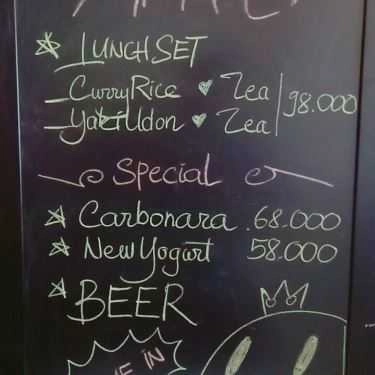 LUNCH SET
Curry Rice Tea
Yaki Udon Tea
98.000
Special
Carbonara 68.000
New Yogurt 58.000
BEER
IN